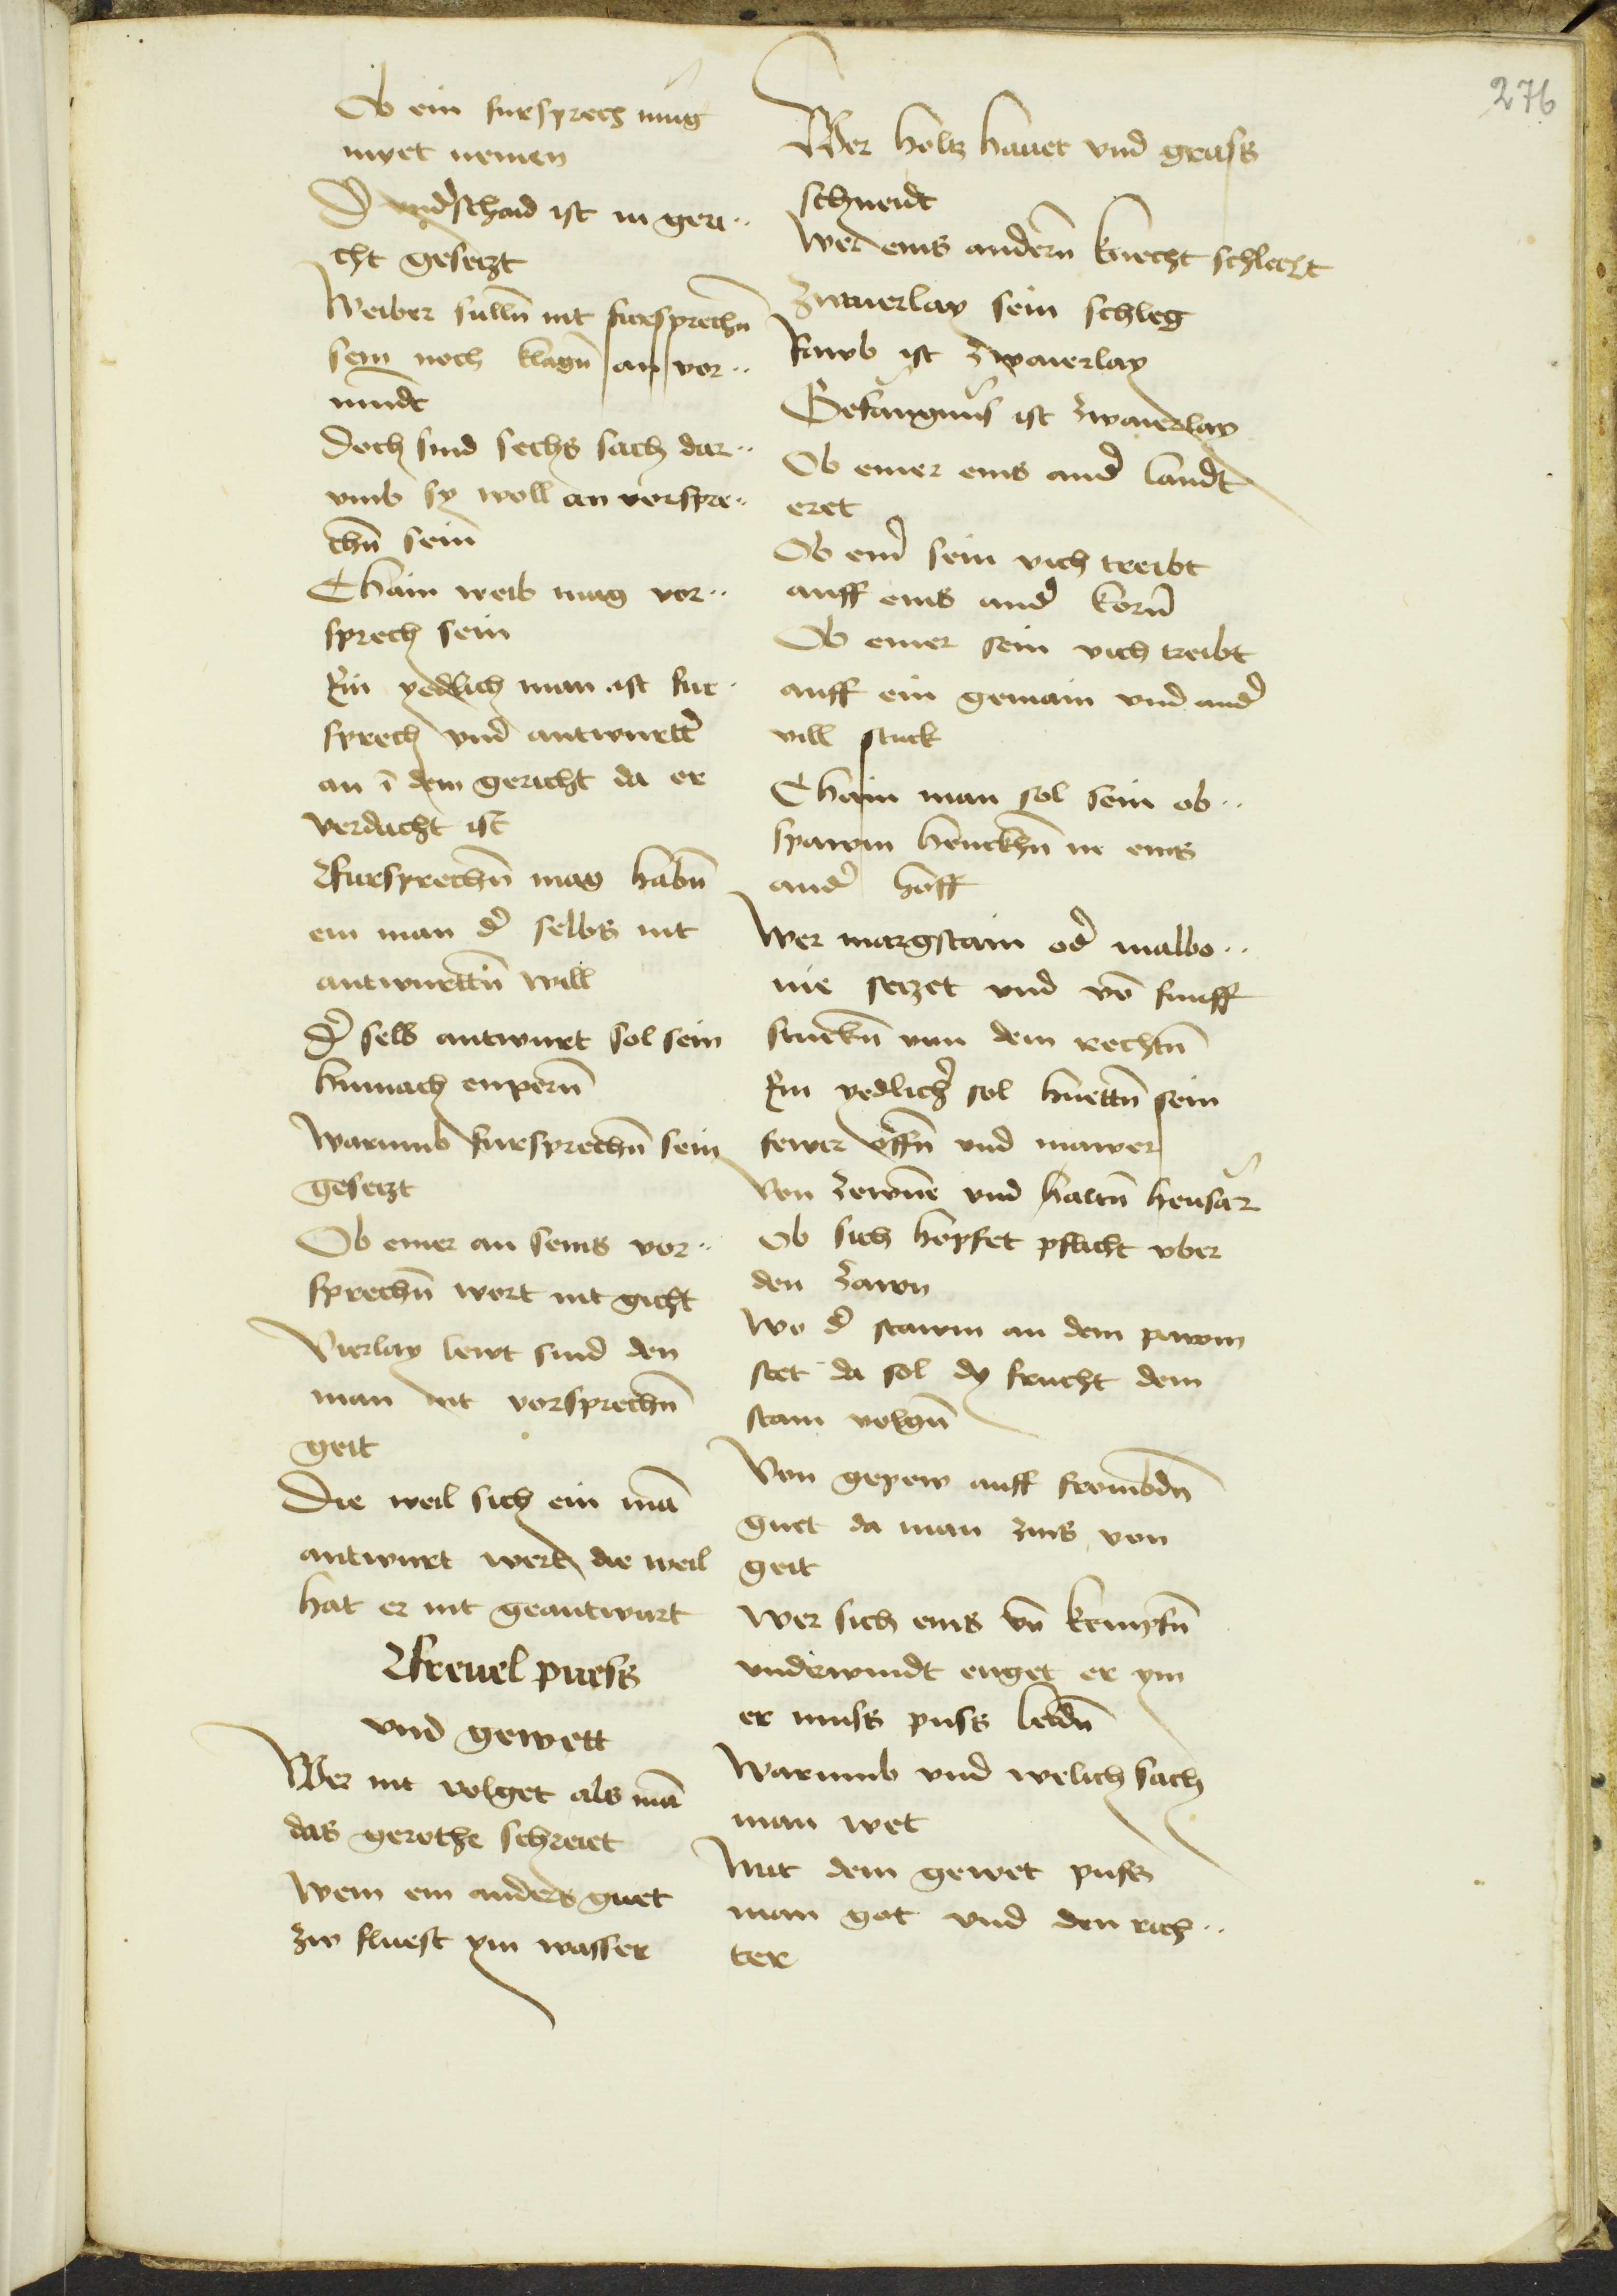 276
Ob ein fursprech mug
myet nemen
D vnd̉schaid ist in geri..
cht gesetzt
Weiber sulln̄ nit fursprechn̄
sein noch klagn̄ an vor..
mundt
Doch sind sechs sach dar..
vmb sy woll an vorspre..
chn̄ sein
Chain weib mag vor..
sprech sein
Ein yedlich man ist fur.
sprech vnd antwurtt̉
an ī dem gericht da er
verdacht ist
Fursprechn̄ mag habn̄
ein man d̉ selbs nit
antwurttn̄ will
D̉ selb antwurt sol sein
hinnach enpern̄
Warumb fursprechn̄ sein
gesetzt
Ob einer an seins vor..
sprechn̄ wort nit gicht
Vierlay lewt sind den
man nit vorsprechn̄
geit
Die weil sich ein mā
antwurt wert die weil
hat er nit geantwurt
Freuel puess
vnd gewett
Wer nit volget als mā
das gerothe schreiet
Wem ein anders guet
zw fluest ym wasser
Wer holtz hauet vnd grass
schneidt
Wer eins andern̄ knecht schlecht
Zwaierlay sein schleg
Rawb ist zwaierlay
Gefangnus ist zwaierlay
Ob einer eins and̉ landt
eret
Ob ein̉ sein vich treibt
auff eins and̉ korn̄
Ob einer sein vich treibt
auff ein gemain vnd and̉
vill stuck
Chain man sol sein ob..
spawm henckhn̄ in eins
and̉ hoff
Wer margstain od̉ malbo..
me setzet vnd vō funff
stuckn̄ von dem rechtn̄
Ein yedlich̉ sol huettn̄ sein
fewer offn̄ vnd mawer
Von zewne vnd haltn̄ heusar
Ob sich hopfet pflicht vber
den zawn
Wo d̉ stawm an dem pawm
stet da sol dy frucht dem
stam volgn̄
Von gepew auff frombdn̄
guet da man zins von
geit
Wer sich eins vn̄ kempfn̄
vnderwindt enget er ym
er muss puss leidn̄
Warumb vnd welich sach
man wet
Mit dem gewet puss
man got vnd den rich..
ter